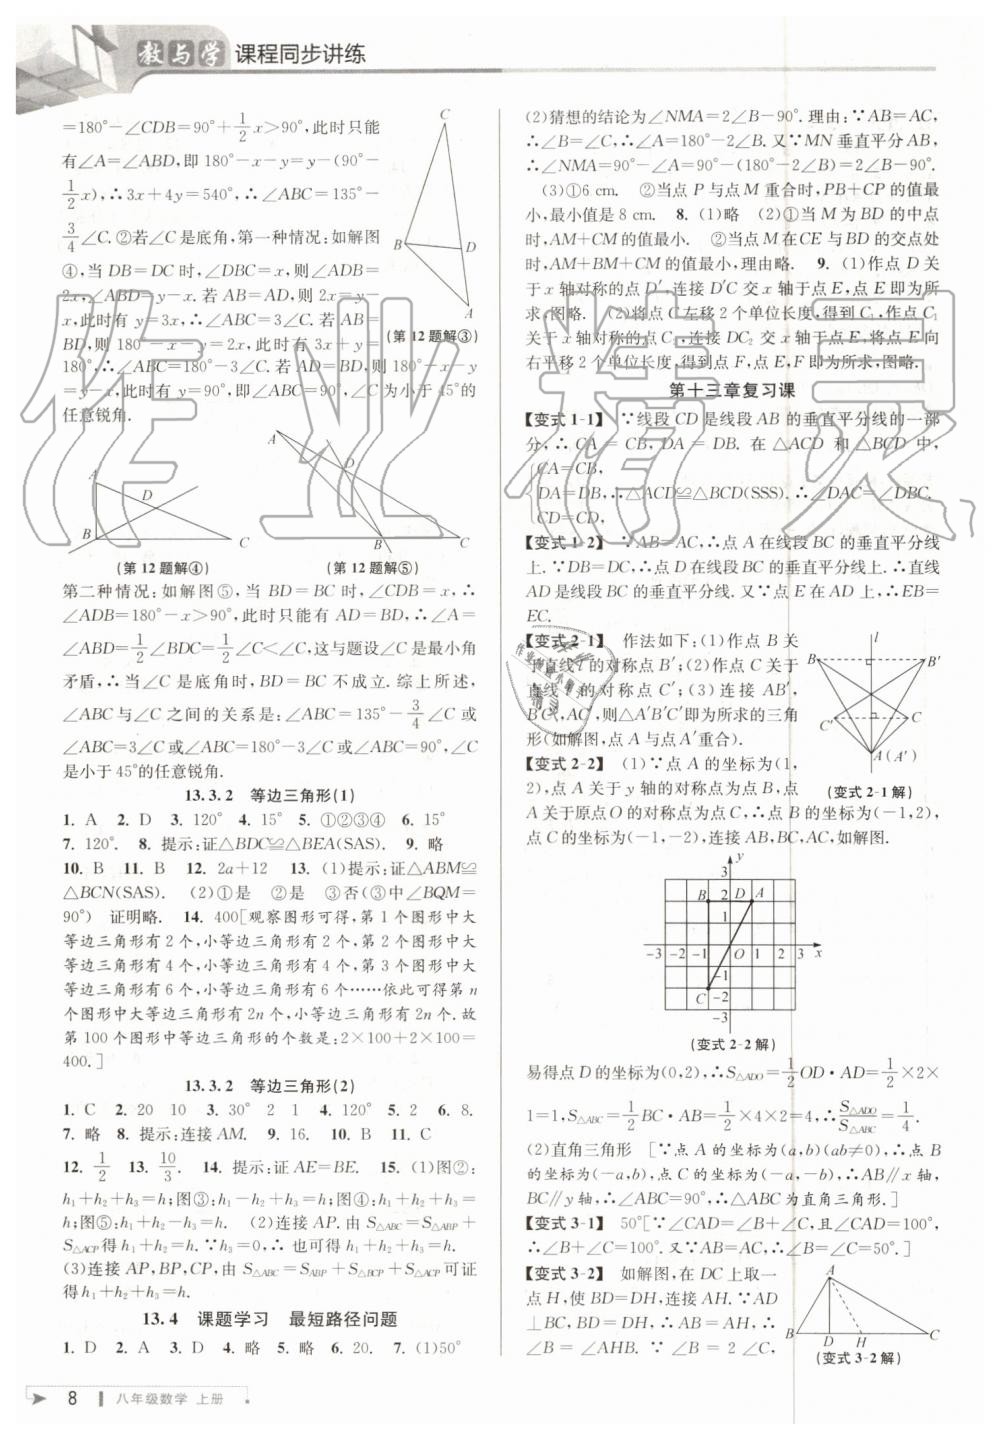 教与学 课程同步讲练
=180°-∠CDB=90°+1/2x>90°,此时只能
有∠A=∠ABD,即 180°-x-y=y-(90°-
1/2x),∴3x+4y=540°,∴∠ABC=135°-
3/4∠C.②若∠C是底角,第一种情况:如解图
④,当 DB=DC时,∠DBC=x,则∠ADB=
2x,∠ABD=y-x.若 AB=AD,则 2x=y-
x,此时有 y=3x,∴∠ABC=3∠C.若 AB=
BD,则 180°-x-y=2x,此时有 3x+y=
180°,∴∠ABC=180°-3∠C.若 AD=BD,则 180°-x-y
=y-x,此时有 y=90°,即∠ABC=90°,∠C 为小于 45°的
任意锐角.
C
B
D
A
(第 12题解③)
A
D
B
C
(第 12题解④)
A
D
B
C
(第 12题解⑤)
第二种情况:如解图⑤,当 BD=BC 时,∠CDB=x,∴
∠ADB=180°-x>90°,此时只能有 AD=BD,∴∠A=
∠ABD=1/2∠BDC=1/2∠C<∠C,这与题设∠C是最小角
矛盾,∴当∠C 是底角时,BD=BC 不成立.综上所述,
∠ABC与∠C之间的关系是:∠ABC=135°-3/4∠C或
∠ABC=3∠C或∠ABC=180°-3∠C或∠ABC=90°,∠C
是小于45°的任意锐角.
13.3.2 等边三角形(1)
1. A 2. D 3. 120° 4. 15° 5. ①②③④ 6. 15°
7. 120°. 8. 提示:证△BDC≌△BEA(SAS). 9. 略
10. B 11. B 12. 2a+12 13. (1)提示:证△ABM≌
△BCN(SAS). (2)①是 ②是 ③否(③中∠BQM=
90°) 证明略. 14. 400[观察图形可得,第 1 个图形中大
等边三角形有 2 个,小等边三角形有 2 个,第 2 个图形中大
等边三角形有 4 个,小等边三角形有 4 个,第 3 个图形中大
等边三角形有 6 个,小等边三角形有 6 个……依此可得第 n
个图形中大等边三角形有 2n 个,小等边三角形有 2n 个.故
第 100 个图形中等边三角形的个数是:2×100+2×100=
400.]
13.3.2 等边三角形(2)
1. C 2. 20 10 3. 30° 2 1 4. 120° 5. 2 6. 8.
7. 略 8. 提示:连接 AM. 9. 16. 10. B 11. C
12. 1/2 13. 10/3. 14. 提示:证 AE=BE. 15. (1)图②:
h₁+h₂+h₃=h;图③:h₁-h₂+h₃=h;图④:h₁+h₂+h₃=
h;图⑤:h₁+h₂-h₃=h. (2)连接 AP.由 S△ABC=S△ABP+
S△ACP得 h₁+h₂=h.∵h₃=0,∴ 也可得 h₁+h₂+h₃=h.
(3)连接 AP,BP,CP,由 S△ABC=S△ABP+S△BCP+S△ACP可证
得 h₁+h₂+h₃=h.
13.4 课题学习 最短路径问题
1. D 2. A 3. D 4. 略 5. 略 6. 20. 7. (1)50°
(2)猜想的结论为∠NMA=2∠B-90°.理由:∵AB=AC,
∴∠B=∠C,∴∠A=180°-2∠B.又∵MN垂直平分AB,
∴∠NMA=90°-∠A=90°-(180°-2∠B)=2∠B-90°.
(3)①6 cm. ②当点 P 与点 M 重合时,PB+CP 的值最
小,最小值是 8 cm. 8. (1)略 (2)①当 M 为 BD 的中点
时,AM+CM的值最小. ②当点 M在CE 与BD 的交点处
时,AM+BM+CM的值最小,理由略. 9. (1)作点 D 关
于 x 轴对称的点 D′,连接 D′C 交 x 轴于点 E,点 E即为所
求,图略. (2)将点 C 左移 2 个单位长度,得到 C₁,作点 C₁
关于 x 轴对称的点 C₂,连接 DC₂ 交 x 轴于点 E,将点 E 向
右平移 2 个单位长度,得到点 F,点 E,F 即为所求,图略.
第十三章复习课
【变式 1-1】 ∵线段 CD 是线段 AB 的垂直平分线的一部
分,∴ CA = CB, DA = DB. 在 △ACD 和 △BCD 中,
CA=CB,
DA=DB,∴△ACD≌△BCD(SSS).∴∠DAC=∠DBC.
CD=CD,
【变式 1-2】 ∵AB=AC,∴点 A在线段 BC 的垂直平分线
上.∵DB=DC,∴点 D在线段BC的垂直平分线上.∴直线
AD是线段 BC 的垂直平分线.又∵点 E在 AD 上,∴EB=
EC.
【变式 2-1】 作法如下:(1)作点 B 关
于直线 l 的对称点 B′;(2)作点 C 关于
直线 l 的对称点 C′;(3)连接 AB′,
B′C′,AC′,则△A′B′C′即为所求的三角
形(如解图,点 A 与点 A′重合).
l
B
B′
C′
C
A(A′)
(变式 2-1 解)
【变式 2-2】 (1)∵点 A 的坐标为(1,
2),点 A 关于 y 轴的对称点为点 B,点
A关于原点O的对称点为点C,∴点 B 的坐标为(-1,2),
点 C的坐标为(-1,-2),连接 AB,BC,AC,如解图.
y
3
B 2 D A
1
-3 -2 -1 O 1 2 3 x
C -2
-3
(变式 2-2 解)
易得点 D 的坐标为(0,2),∴S△ADO=1/2OD·AD=1/2×2×
1=1,S△ABC=1/2BC·AB=1/2×4×2=4,∴S△ADO/S△ABC=1/4.
(2)直角三角形 [∵点 A 的坐标为(a,b)(ab≠0),∴点 B
的坐标为(-a,b),点 C 的坐标为(-a,-b),∴AB∥x 轴,
BC∥y轴,∴∠ABC=90°,∴△ABC为直角三角形.]
【变式 3-1】 50°[∵∠CAD=∠B+∠C,且∠CAD=100°,
∴∠B+∠C=100°.又∵AB=AC,∴∠B=∠C=50°.]
【变式 3-2】 如解图,在 DC 上取一
点 H,使 BD=DH,连接 AH.∵AD
⊥BC, BD = DH, ∴ AB = AH, ∴
∠B = ∠AHB. ∵ ∠B = 2 ∠C,
A
B D H C
(变式 3-2 解)
8 八年级数学 上册
作业精灵